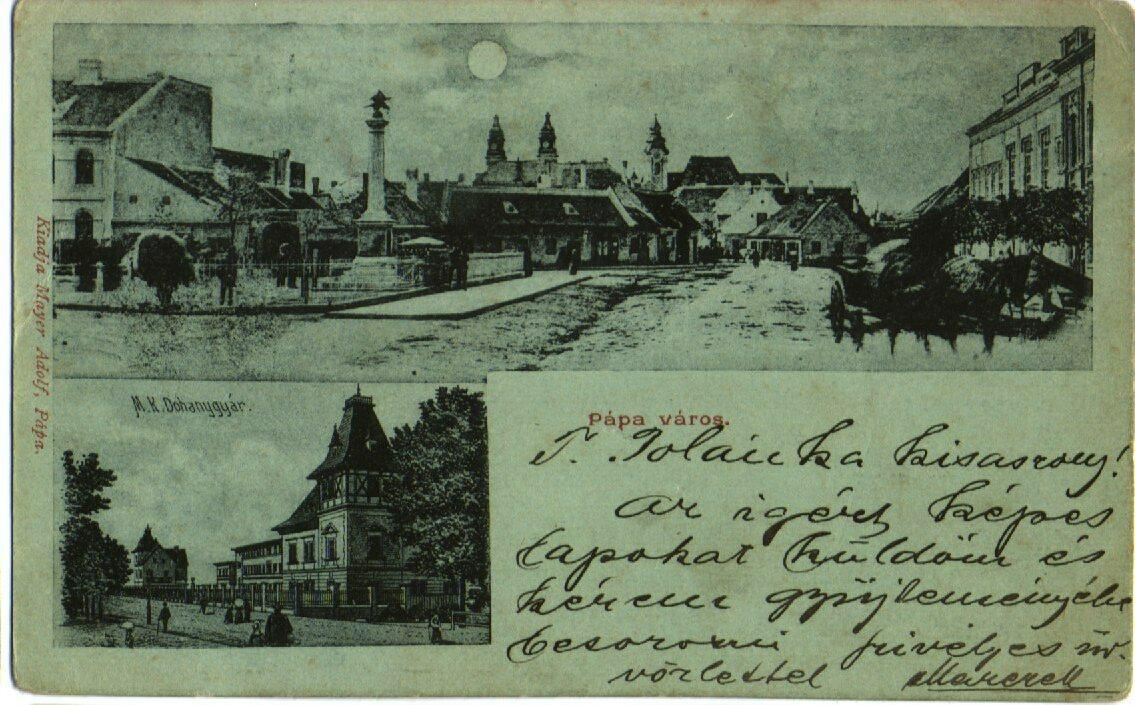 Kiadja Mayer Adolf, Pápa.
M.K. Dohanygyár.
Pápa város.
T. Jolánka kisasszony!
Az igért képes
lapokat küldöm és
kérem gyűjteményébe
besorozni szivélyes üd-
vözlettel